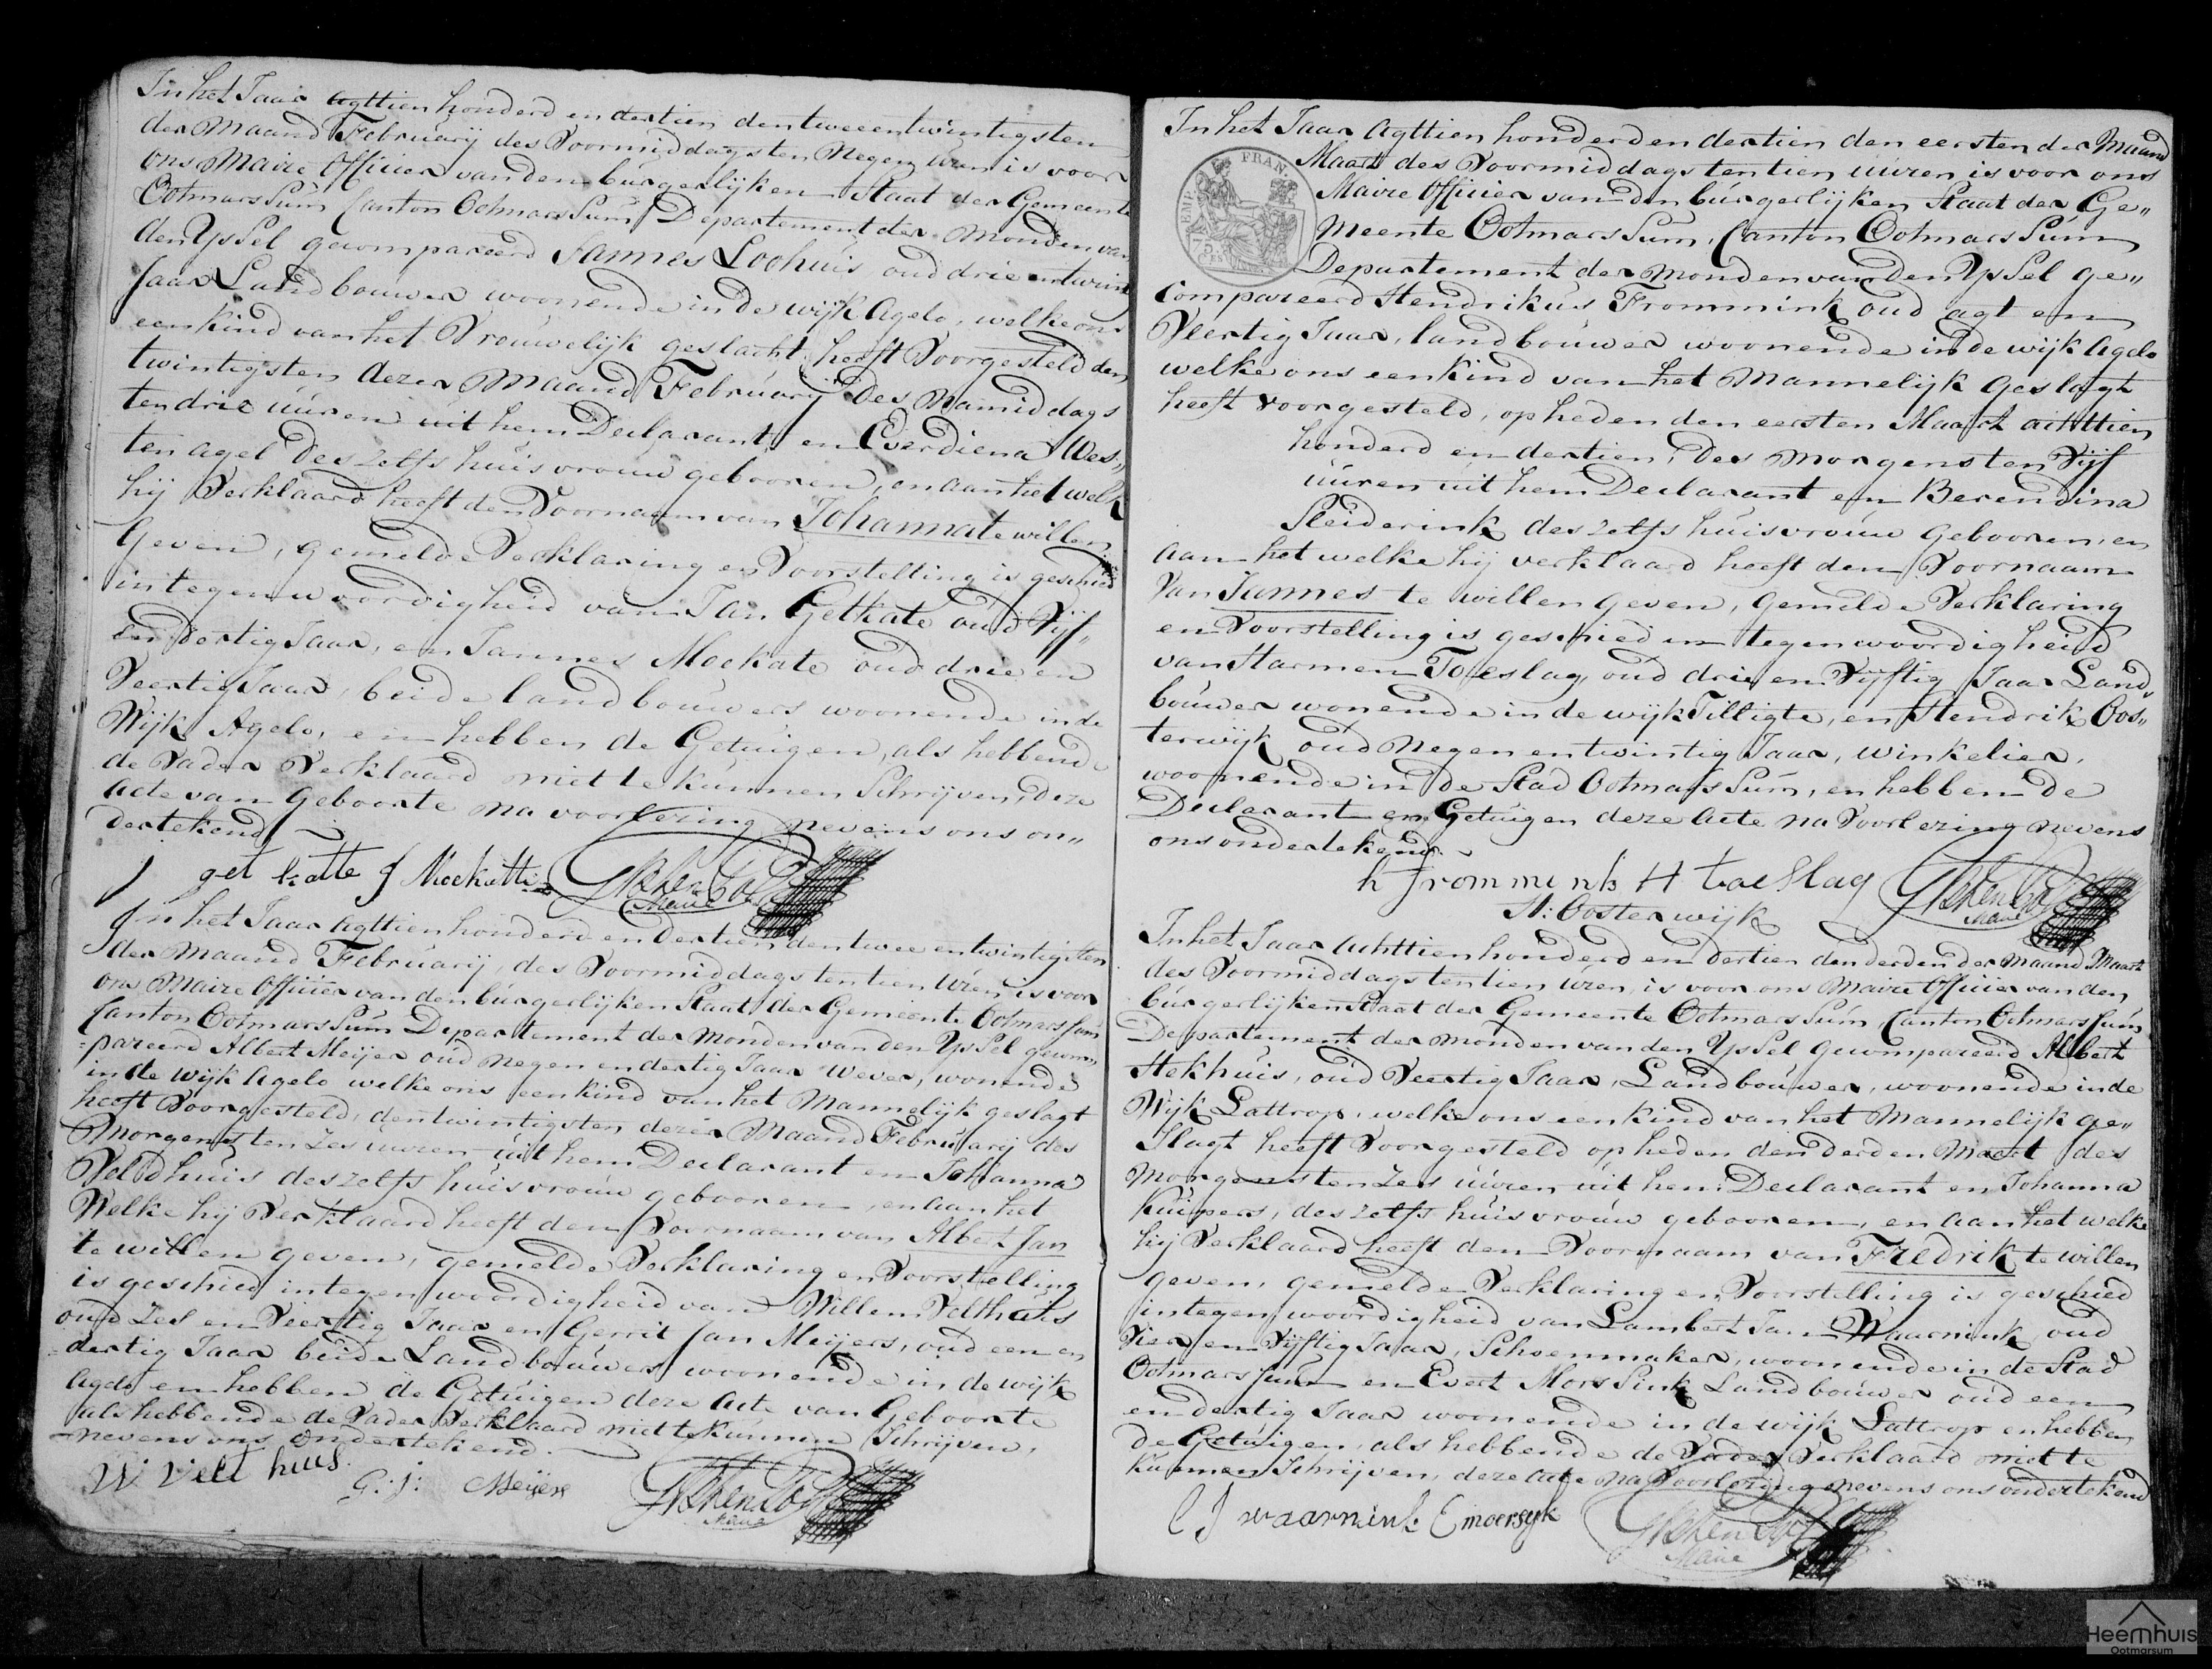 In het Jaar agttien honderd en dertien den tweeentwintigsten
der Maand Februarij des Voormiddags ten Negen uren is voor
ons Maire Officier van den burgerlijken Staat der Gemeente
OotmarsSum Canton OotmarsSum Departement der Monden van
den YsSel gecompareerd Jannes Loohuis, oud drie en twintig
Jaar Landbouwer woonende in de wijk Agelo, welke ons
een kind van het Vrouwelijk geslacht heeft Voorgesteld den
twintigsten dezer Maand Februarij des Namiddags
ten drie uuren uit hem Declarant en Everdiena Wes,,
ten agel deszelfs huisvrouw gebooren, en aan het welk
hij Verklaard heeft den Voornaam van Johanna te willen
Geven, gemelde Verklaring en Voorstelling is geschied
in tegenwoordigheid van Jan Getkate oud Vijf,,
en dertig Jaar, en Jannes Mockate oud drie en
Veertig Jaar, beide landbouwers woonende in de
Wijk Agelo, en hebben de Getuigen, als hebbende
de Vader Verklaard niet te kunnen Schrijven, deze
Acte van Geboorte na voorlezing nevens ons on,,
dertekend
J get katte J Mockatte
Maire
In het Jaar Agttien honderd en dertien den twee entwintigsten
der Maand Februarij, des Voormiddags ten tien Uren is voor
ons Maire Officier van den burgerlijken Staat der Gemeente OotmarsSum
Canton OotmarsSum Departement der Monden van den YsSel gecom,,
=pareerd Albert Meijer oud negen en dertig Jaar Wever, wonende
in de wijk Agelo welke ons een kind van het Mannelijk geslagt
heeft Voorgesteld, den twintigsten dezer Maand Februarij des
Morgens ten Zes uuren uit hem Declarant en Johanna
Veldhuis deszelfs huisvrouw gebooren, en aan het
Welke hij Verklaard heeft den Voornaam van Albert Jan
te willen geven, gemelde Verklaring en Voorstelling
is geschied in tegenwoordigheid van Willem Velthuis
oud Zes en Veertig Jaar en Gerrit Jan Meijers, oud een en
dertig Jaar beide Landbouwers woonende in de wijk
Agelo en hebben de Getuigen deze Acte van Geboorte
als hebbende de Vader Verklaard niet te kunnen Schrijven,
nevens ons ondertekend.
W Velt huis
G: J: Meijers
Maire
In het Jaar Agttien honderd en dertien den eersten der Maand
Maart des Voormiddags ten tien uuren is voor ons
Maire Officier van den burgerlijken Staat der Ge,,
Meente OotmarsSum, Canton OotmarsSum
Departement der Monden van den YsSel ge,,
Compareerd Hendrikus Frommink oud agt en
Veertig Jaar, landbouwer woonende in de wijk Agelo
welke ons een kind van het Mannelijk Geslagt
heeft Voorgesteld, op heden den eersten Maart achttien
honderd en dertien, des Morgens ten Vijf
uuren uit hem Declarant en Berendina
Sleiderink deszelfs huisvrouw Gebooren, en
aan het welke hij verklaard heeft den Voornaam
Van Jannes te willen geven, Gemelde Verklaring
en Voorstelling is geschied in tegenwoordigheid
van Harmen Toeslag, oud drie en Vijftig Jaar Land,,
bouwer wonende in de wijk Tilligte, en Hendrik Oos,,
terwijk oud Negen entwintig Jaar, Winkelier,
woonende in de Stad OotmarsSum, en hebben de
Declarant en Getuigen deze Acte na Voorlezing nevens
ons ondertekend
EMP. FRAN.
75
h Frommink H toeslag
H: Oosterwijk
Maire
In het Jaar Achttien honderd en dertien den derden der Maand Maart
des Voormiddags ten tien uren, is voor ons Maire Officier van den
burgerlijken Staat der Gemeente OotmarsSum Canton OotmarsSum
Departement der Monden van den YsSel Gecompareerd Albert
Hekhuis, oud Veertig Jaar, Landbouwer, woonende in de
Wijk Lattrop, welke ons een kind van het Mannelijk ge,,
Slagt heeft Voorgesteld op heden den derden Maart des
Morgens ten Zes uuren uit hem Declarant en Johanna
Kuipers, deszelfs huisvrouw gebooren, en aan het welke
hij Verklaard heeft den Voornaam van Fredrik te willen
geven, gemelde Verklaring en Voorstelling is geschied
in tegenwoordigheid van Lambert Jan Waarnink oud
Vier en Vijftig Jaar, Schoenmaker, woonende in de Stad
OotmarsSum en Evert MorsSink Landbouwer oud een
en dertig Jaar woonende in de wijk Lattrop en hebben
de Getuigen, als hebbende de Vader Verklaard niet te
kunnen Schrijven, deze acte na Voorlezing nevens ons ondertekend
L J waarnink E moersyk
Maire
Heemhuis
Ootmarsum